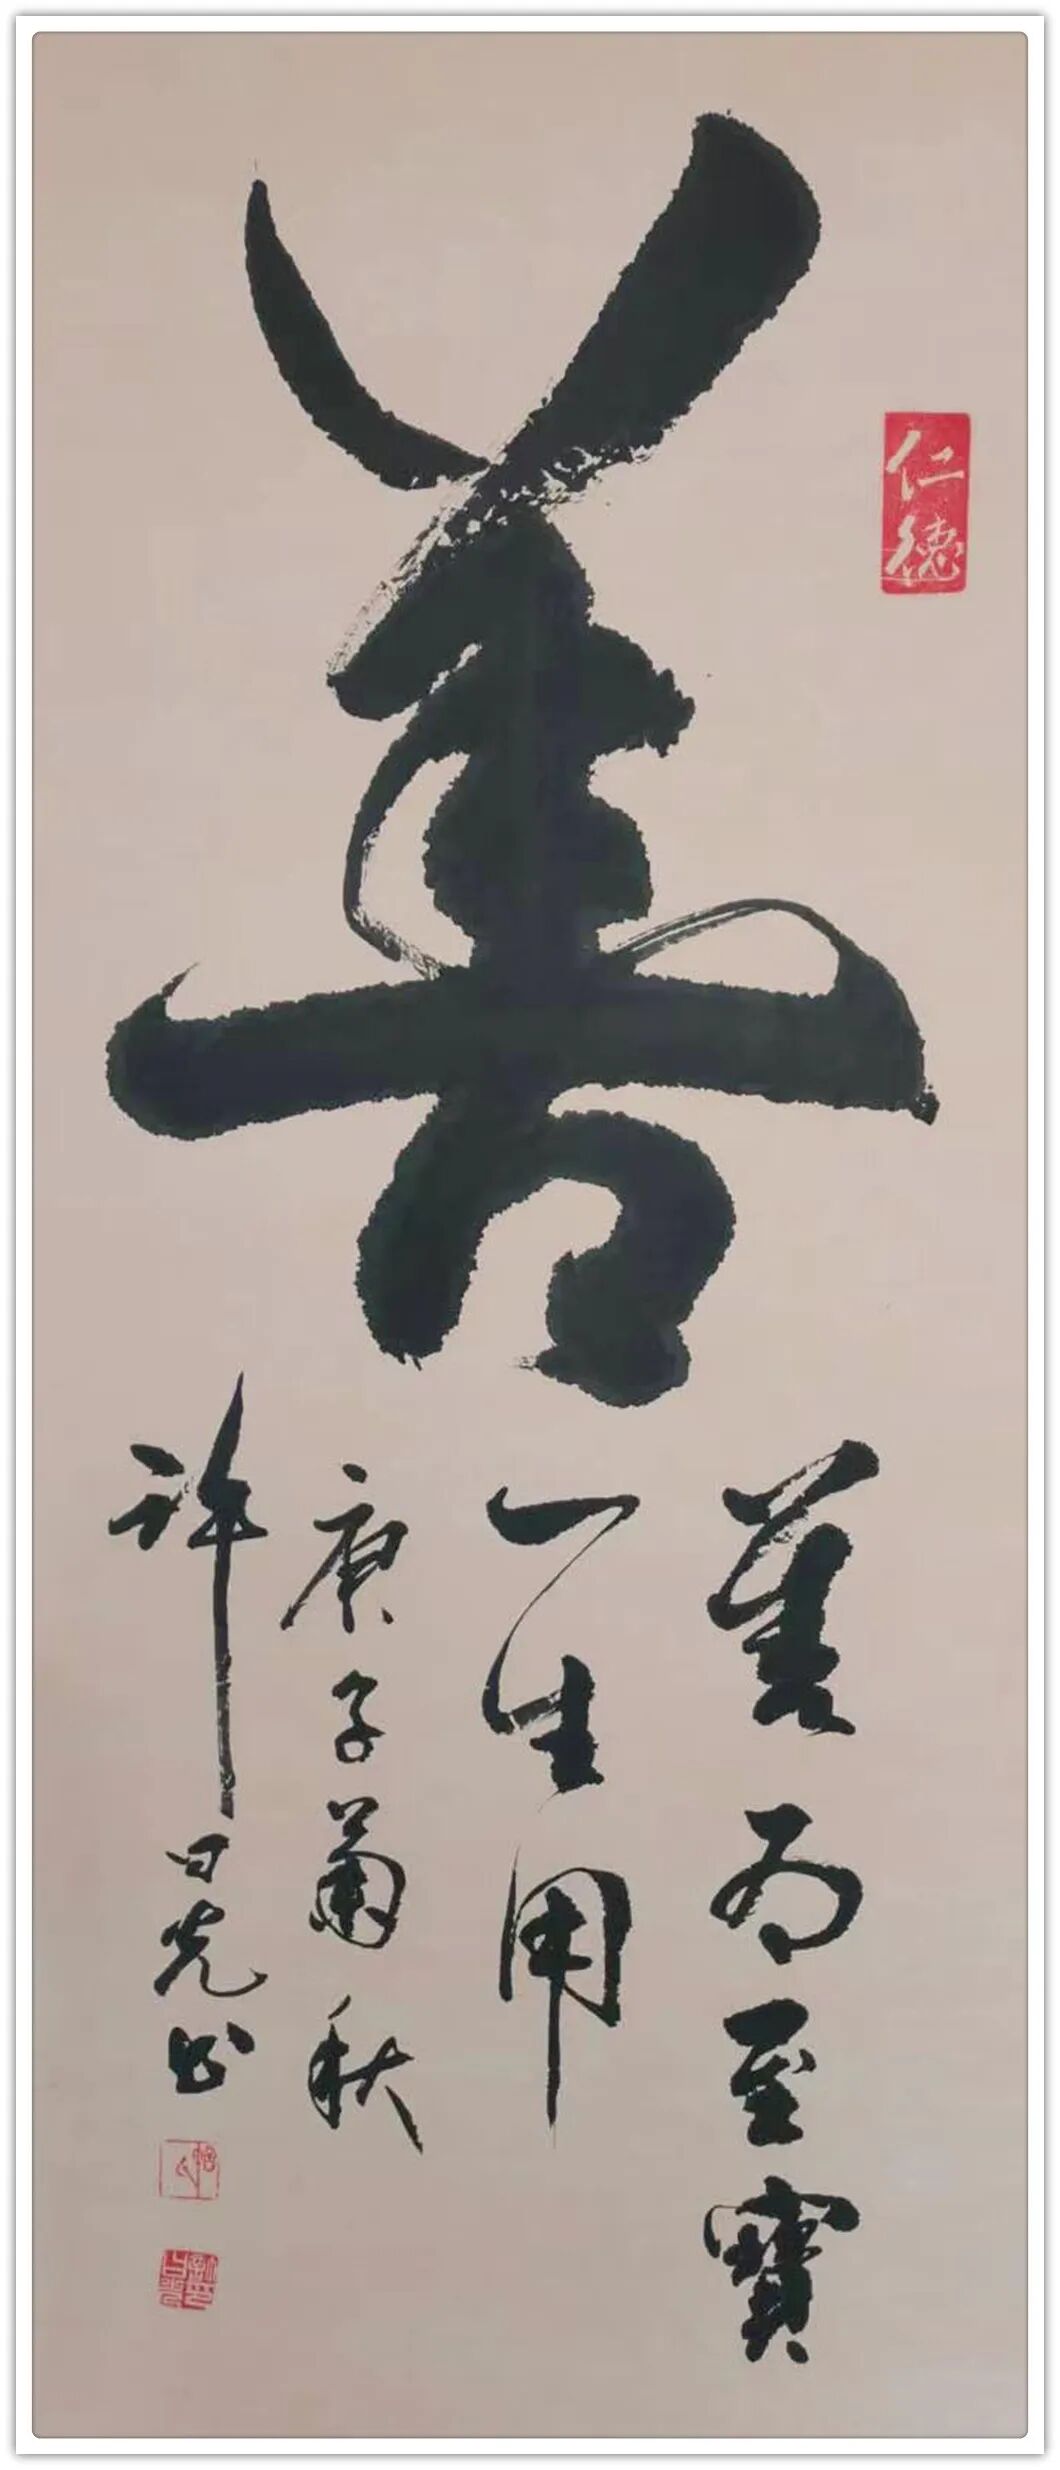 善
仁德
善为至寶
一生用
庚子蘭秋
许日光书